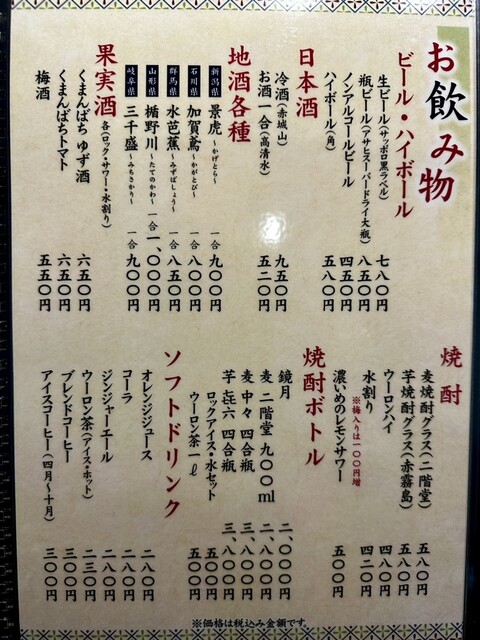 お飲み物
ビール・ハイボール
生ビール(サッポロ黒ラベル) 七八〇円
瓶ビール(アサヒスーパードライ大瓶) 八五〇円
ノンアルコールビール 四五〇円
ハイボール(角) 五八〇円
日本酒
冷酒(赤城山) 九五〇円
お酒一合(高清水) 五二〇円
地酒各種
新潟県 景虎 ~かげとら~ 一合 九〇〇円
石川県 加賀鳶 ~かがとび~ 一合 八〇〇円
群馬県 水芭蕉 ~みずばしょう~ 一合 八五〇円
山形県 楯野川 ~たてのかわ~ 一合 一、〇〇〇円
岐阜県 三千盛 ~みちさかり~ 一合 九〇〇円
果実酒 各(ロック・サワー・水割り)
くまんばち ゆず酒 六五〇円
くまんばちトマト 六五〇円
梅酒 五五〇円
焼酎
麦焼酎グラス(二階堂) 五八〇円
芋焼酎グラス(赤霧島) 五八〇円
ウーロンハイ 四八〇円
水割り 四二〇円
※梅入りは一〇〇円増
濃いめのレモンサワー 五〇〇円
焼酎ボトル
鏡月 二、〇〇〇円
麦 二階堂 九〇〇ml 二、八〇〇円
麦 中々 四合瓶 三、八〇〇円
芋 㐂六 四合瓶 三、八〇〇円
ロックアイス・水セット 五〇〇円
ウーロン茶 1ℓ 五〇〇円
ソフトドリンク
オレンジジュース 二八〇円
コーラ 二八〇円
ジンジャーエール 二八〇円
ウーロン茶(アイス・ホット) 二三〇円
ブレンドコーヒー 三〇〇円
アイスコーヒー(四月~十月) 三〇〇円
※価格は税込み金額です。